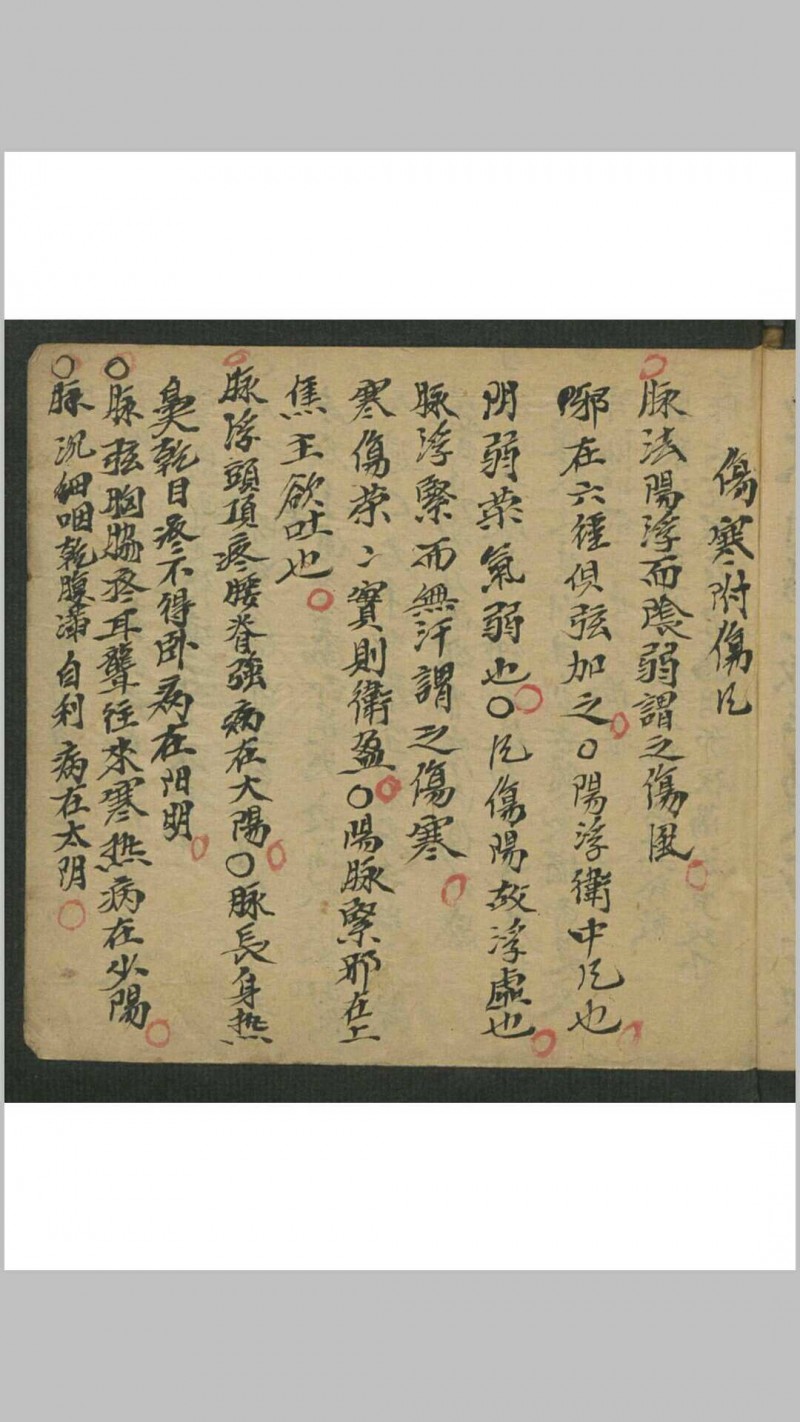 傷寒附傷凨
脉法陽浮而陰弱謂之傷風
邪在六經俱弦加之○陽浮衛中凨也
阴弱荣氣弱也○凨傷陽故浮虛也
脉浮緊而無汗謂之傷寒
寒傷荣〻實則衛盈○陽脉緊邪在上
焦主欲吐也
脉浮頭項疼腰脊強病在大陽○脉長身热
鼻乾目疼不得卧病在阳明
○脉弦胸脇疼耳聾往來寒热病在少陽
○脉沉細咽乾腹滿自利病在太阴